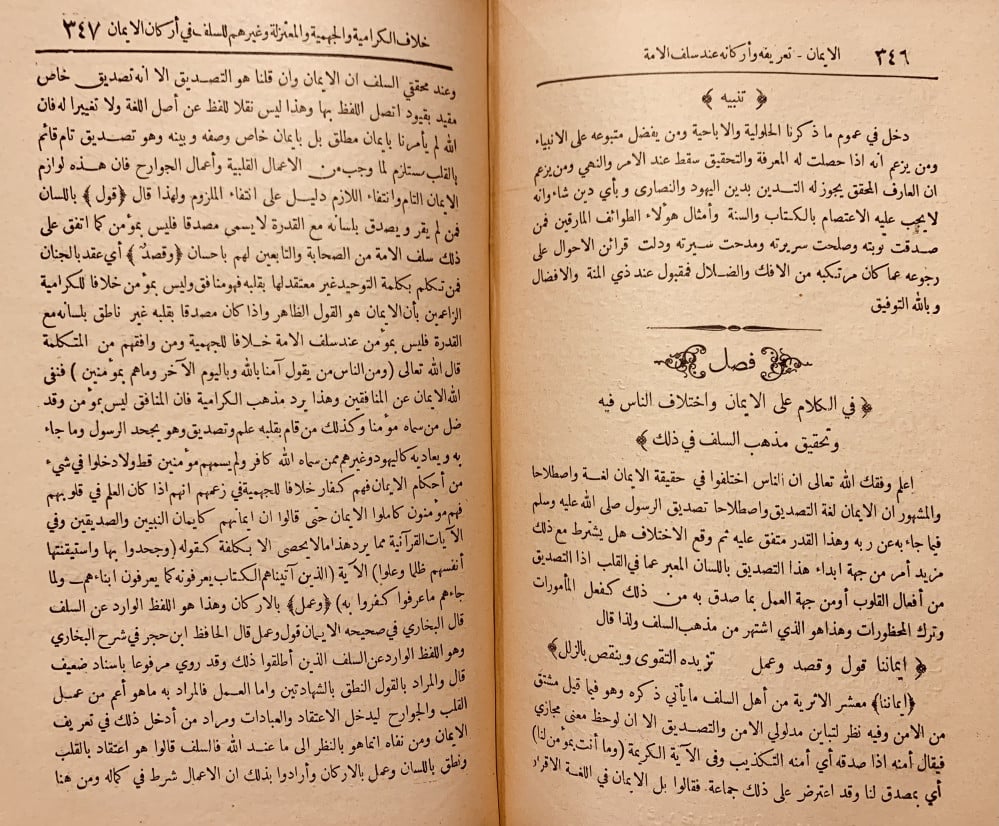 ٣٤٦ الايمان - تعريفه وأركانه عند سلف الامة
﴿ تنبيه ﴾
دخل في عموم ما ذكرنا الحلولية والاباحية ومن يفضل متبوعه على الانبياء
ومن يزعم انه اذا حصلت له المعرفة والتحقيق سقط عند الامر والنهي ومن يزعم
ان العارف المحقق يجوز له التدين بدين اليهود والنصارى وبأي دين شاء وانه
لا يجب عليه الاعتصام بالكتاب والسنة وأمثال هؤلاء الطوائف المارقين فمن
صدقت توبته وصلحت سريرته ومدحت سيرته ودلت قرائن الاحوال على
رجوعه عما كان مرتكبه من الافك والضلال فمقبول عند ذي المنة والافضال
وبالله التوفيق
فصل
﴿ في الكلام على الايمان واختلاف الناس فيه
وتحقيق مذهب السلف في ذلك ﴾
اعلم وفقك الله تعالى ان الناس اختلفوا في حقيقة الايمان لغة واصطلاحا
والمشهور ان الايمان لغة التصديق واصطلاحا تصديق الرسول صلى الله عليه وسلم
فيما جاء به عن ربه وهذا القدر متفق عليه ثم وقع الاختلاف هل يشترط مع ذلك
مزيد أمر من جهة ابداء هذا التصديق باللسان المعبر عما في القلب اذا التصديق
من أفعال القلوب أو من جهة العمل بما صدق به من ذلك كفعل المأمورات
وترك المحظورات وهذا هو الذي اشتهر من مذهب السلف ولذا قال
﴿ ايماننا قول وقصد وعمل تزيده التقوى وينقص بالزلل ﴾
﴿ايماننا﴾ معشر الاثرية من أهل السلف ما يأتي ذكره وهو فيما قيل مشتق
من الامن وفيه نظر لتباين مدلولي الامن والتصديق الا ان لوحظ معنى مجازي
فيقال أمنه اذا صدقه أي أمنه التكذيب وفى الآية الكريمة (وما أنت بمؤمن لنا)
أي بمصدق لنا وقد اعترض على ذلك جماعة. فقالوا بل الايمان في اللغة الاقرار
خلاف الكرامية والجهمية والمعتزلة وغيرهم للسلف في أركان الايمان ٣٤٧
وعند محققي السلف ان الايمان وان قلنا هو التصديق الا انه تصديق خاص
مقيد بقيود اتصل اللفظ بها وهذا ليس نقلا للفظ عن أصل اللغة ولا تغييرا له فان
الله لم يأمرنا بايمان مطلق بل بايمان خاص وصفه وبينه وهو تصديق تام قائم
بالقلب مستلزم لما وجب من الاعمال القلبية وأعمال الجوارح فان هذه لوازم
الايمان التام وانتفاء اللازم دليل على انتفاء الملزوم ولهذا قال ﴿قول﴾ باللسان
فمن لم يقر ويصدق بلسانه مع القدرة لا يسمى مصدقا فليس بمؤمن كما اتفق على
ذلك سلف الامة من الصحابة والتابعين لهم باحسان ﴿وقصد﴾ أي عقد بالجنان
فمن تكلم بكلمة التوحيد غير معتقد لها بقلبه فهو منافق وليس بمؤمن خلافا للكرامية
الزاعمين بأن الايمان هو القول الظاهر واذا كان مصدقا بقلبه غير ناطق بلسانه مع
القدرة فليس بمؤمن عند سلف الامة خلافا للجهمية ومن وافقهم من المتكلمة
قال الله تعالى (ومن الناس من يقول آمنا بالله وباليوم الآخر وماهم بمؤمنين) فنفى
الله الايمان عن المنافقين وهذا يرد مذهب الكرامية فان المنافق ليس بمؤمن وقد
ضل من سماه مؤمنا وكذلك من قام بقلبه علم وتصديق وهو يجحد الرسول وما جاء
به ويعاديه كاليهود وغيرهم ممن سماه الله كافر ولم يسمهم مؤمنين قط ولا دخلوا في شيء
من أحكام الايمان فهم كفار خلافا للجهمية في زعمهم انهم اذا كان العلم في قلوبهم
فهم مؤمنون كاملوا الايمان حتى قالوا ان ايمانهم كايمان النبيين والصديقين وفي
الآيات القرآنية مما يرد هذا مالا يحصى الا بكلفة كقوله (وجحدوا بها واستيقنتها
أنفسهم ظلما وعلوا) الآية (الذين آتيناهم الكتاب يعرفونه كما يعرفون ابناءهم - ولما
جاءهم ماعرفوا كفروا به) ﴿وعمل﴾ بالاركان وهذا هو اللفظ الوارد عن السلف
قال البخاري في صحيحه الايمان قول وعمل قال الحافظ ابن حجر في شرح البخاري
وهو اللفظ الوارد عن السلف الذين أطلقوا ذلك وقد روي مرفوعا باسناد ضعيف
قال والمراد بالقول النطق بالشهادتين واما العمل فالمراد به ماهو أعم من عمل
القلب والجوارح ليدخل الاعتقاد والعبادات ومراد من أدخل ذلك في تعريف
الايمان ومن نفاه انما هو بالنظر الى ما عند الله فالسلف قالوا هو اعتقاد بالقلب
ونطق باللسان وعمل بالاركان وأرادوا بذلك ان الاعمال شرط في كماله ومن هنا